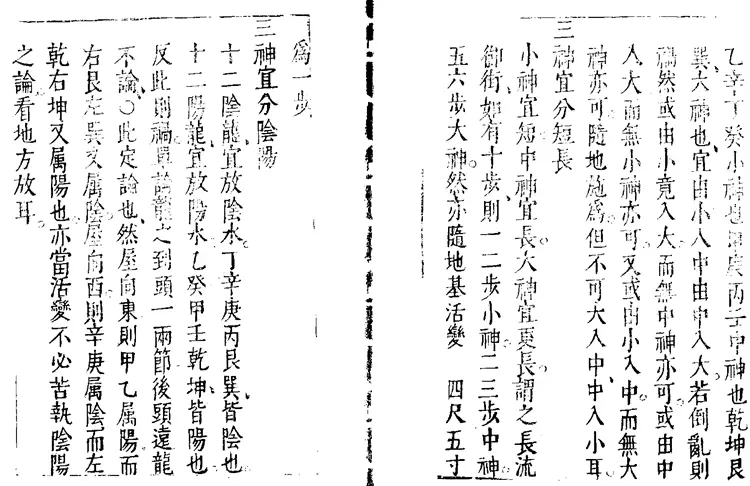 乙辛丁癸小神也甲庚丙壬中神也乾坤艮
巽大神也宜由小入中由中入大若倒亂則
禍然或由小竟入大而無中神亦可或由中
入大而無小神亦可又或由小入中而無大
神亦可隨地施爲但不可大入中中入小耳
三神宜分短長
小神宜短中神宜長大神宜更長謂之長流
御街如有十步則一二步小神二三步中神
五六步大神然亦隨地基活變 四尺五寸
爲一步
三神宜分陰陽
十二陰龍宜放陰水丁辛庚丙艮巽皆陰也
十二陽龍宜放陽水乙癸甲壬乾坤皆陽也
反此則禍具論龍之到頭一兩節後頭遠龍
不論〇此定論也然屋向東則甲乙属陽而
右艮左巽又属陰屋向西則辛庚属陰而左
乾右坤又属陽也亦當活變不必苦執陰陽
之論看地方放耳